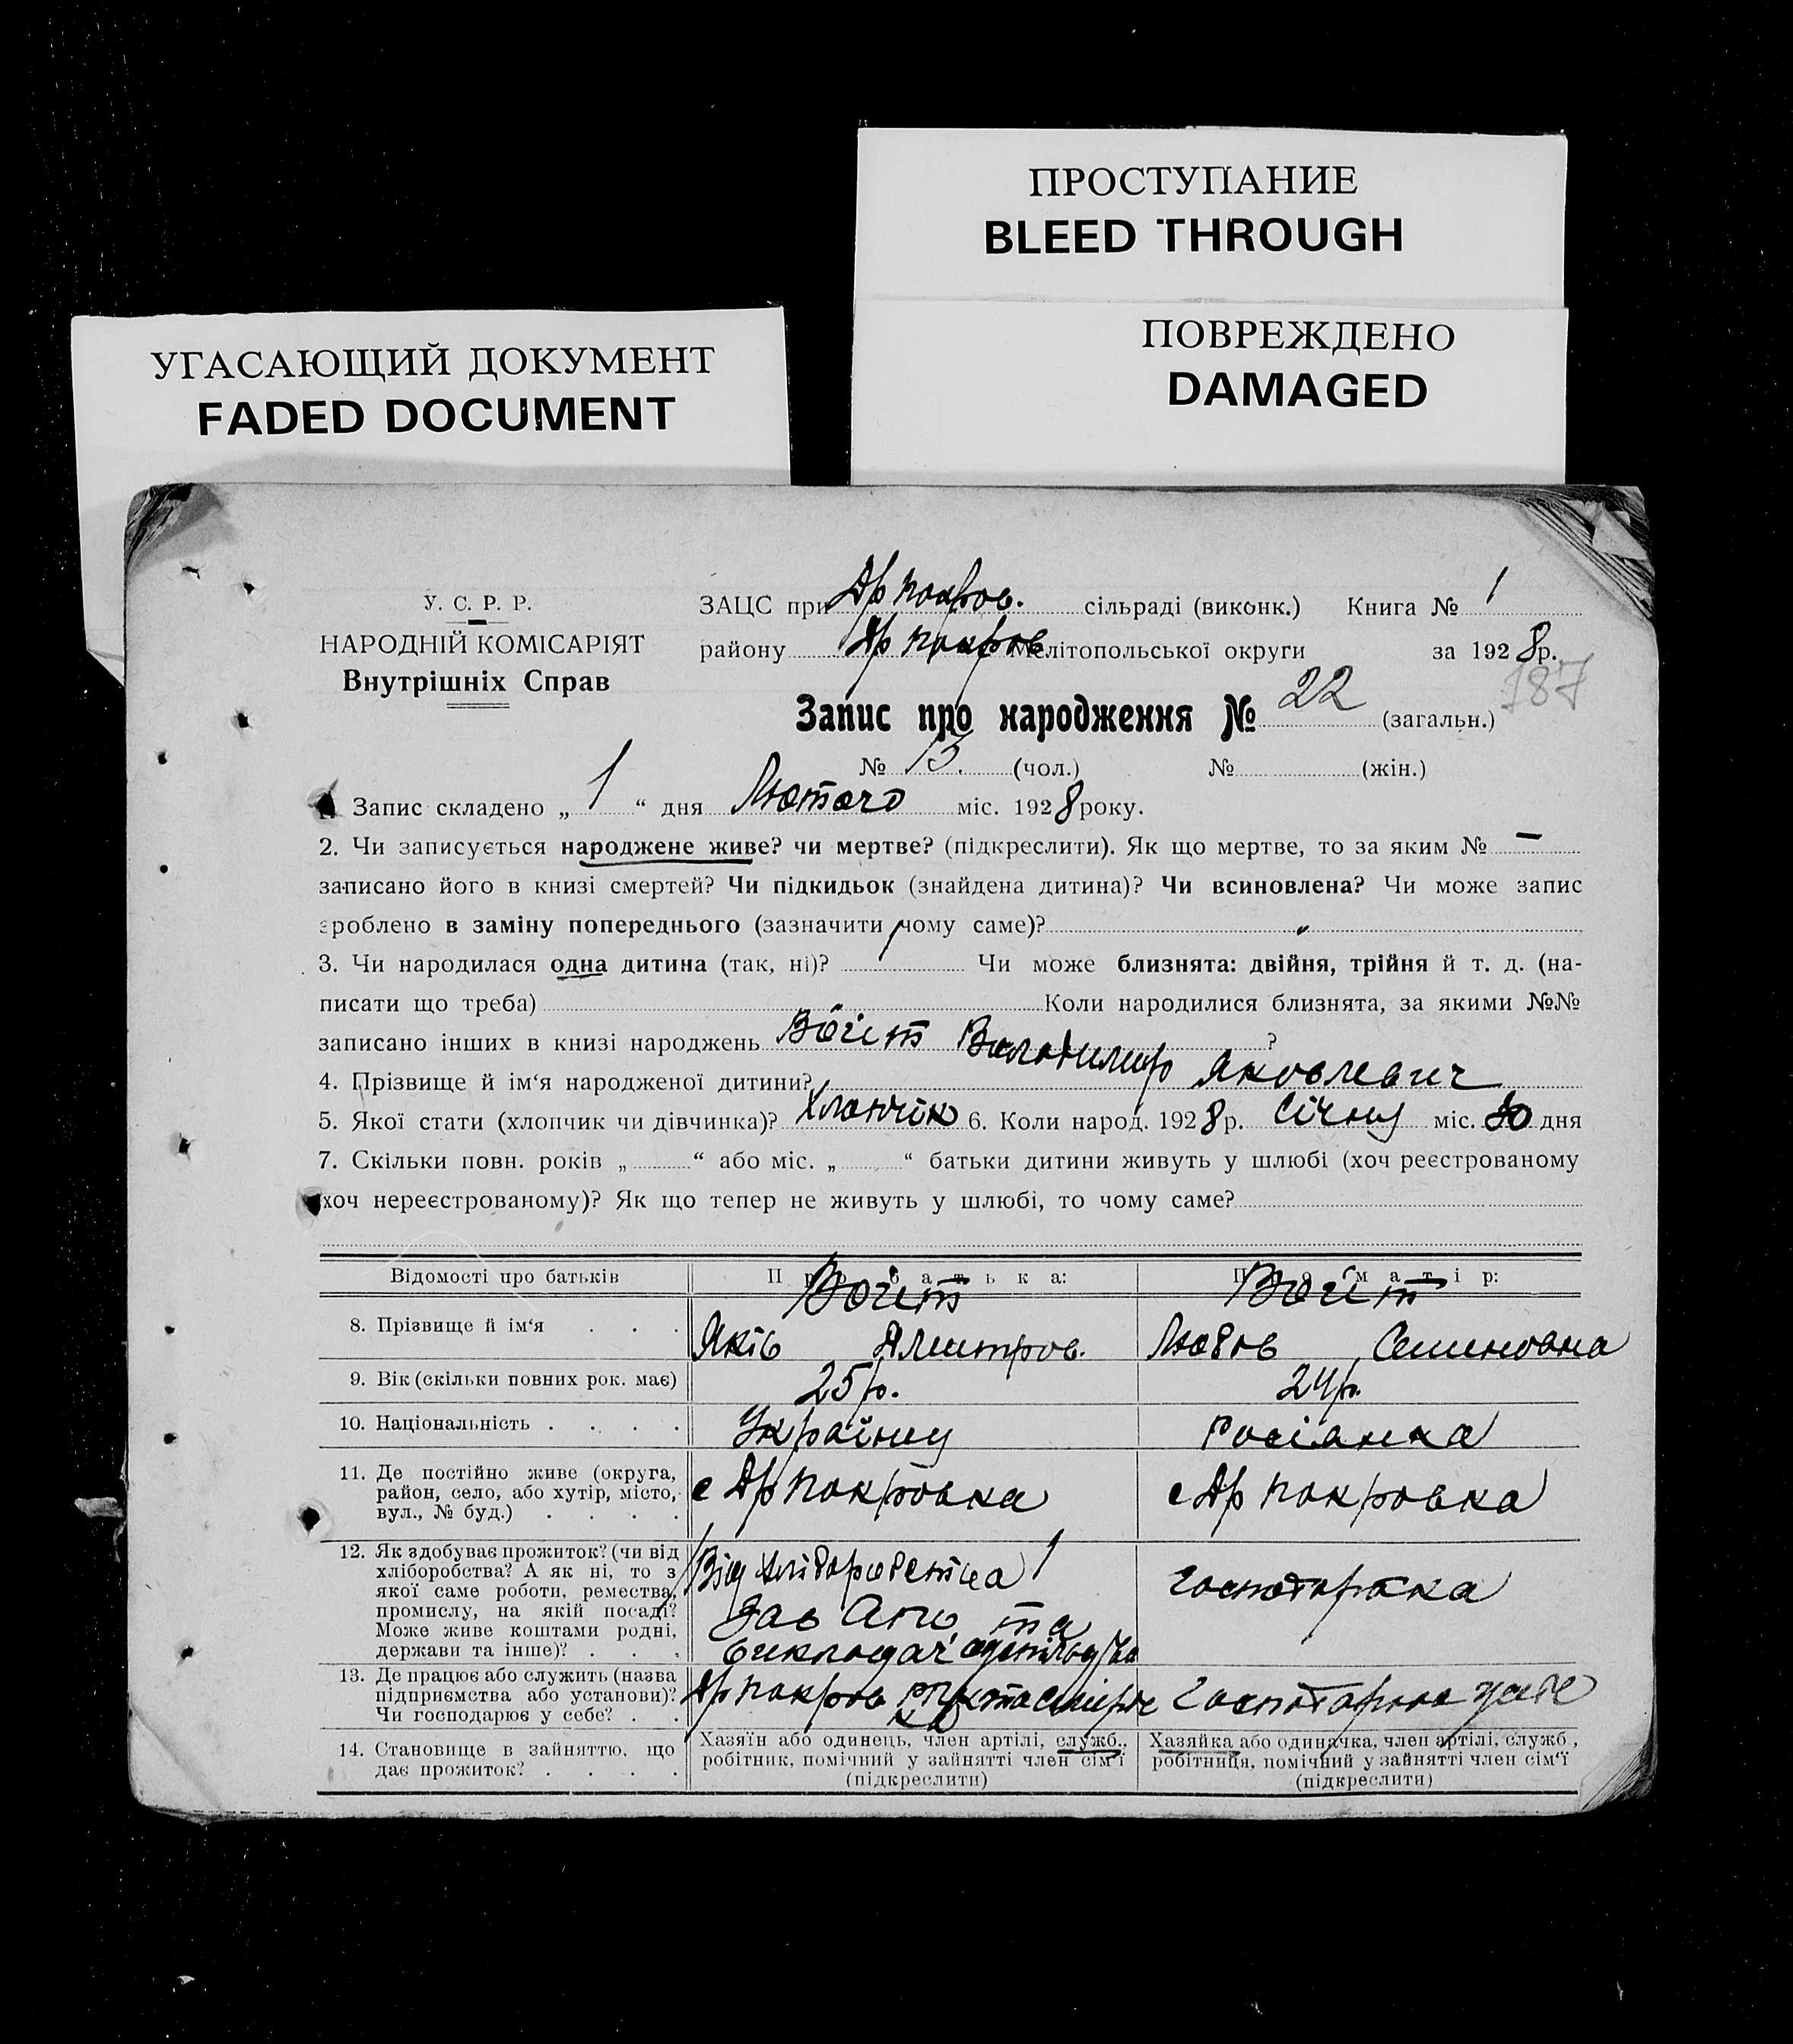 ПРОСТУПАНИЕ
BLEED THROUGH
ПОВРЕЖДЕНО
DAMAGED
УГАСАЮЩИЙ ДОКУМЕНТ
FADED DOCUMENT
У. С. Р. Р.
НАРОДНІЙ КОМІСАРІЯТ
Внутрішніх Справ
ЗАЦС при Др Покров. сільраді (виконк.) Книга № 1
району Др Покров Мелітопольської округи за 1928р.
187
Запис про народження № 22 (загальн.)
№ 13. (чол.) № (жін.)
1. Запис складено „ 1 “ дня Лютого міс. 1928 року.
2. Чи записується народжене живе? чи мертве? (підкреслити). Як що мертве, то за яким № —
записано його в книзі смертей? Чи підкидьок (знайдена дитина)? Чи всиновлена? Чи може запис
зроблено в заміну попереднього (зазначити чому саме)?
3. Чи народилася одна дитина (так, ні)? Чи може близнята: двійня, трійня й т. д. (на-
писати що треба) Коли народилися близнята, за якими №№
записано інших в книзі народжень ?
4. Прізвище й ім‘я народженої дитини? Володимир Яковлевич
5. Якої стати (хлопчик чи дівчинка)? Хлопчик 6. Коли народ. 1928р. Січну міс. 30 дня
7. Скільки повн. років „ “ або міс. „ “ батьки дитини живуть у шлюбі (хоч реєстрованому
хоч нереєстрованому)? Як що тепер не живуть у шлюбі, то чому саме?
Відомості про батьків Про батька: Про матір:
8. Прізвище й ім‘я . . . Яків Дмитров. Любов Семиновна
9. Вік (скільки повних рок. має) 25р. 24р.
10. Національність . . . . Україну Росіянка
11. Де постійно живе (округа,
район, село, або хутір, місто,
вул., № буд.) . . . .
с Др Покровка с Др Покровка
12. Як здобуває прожиток? (чи від
хліборобства? А як ні, то з
якої саме роботи, ремества,
промислу, на якій посаді?
Може живе коштами родні,
держави та інше)? . . .
Від хліборобства
Зав та
викладач
господарка
13. Де працює або служить (назва
підприємства або установи)?
Чи господарює у себе? . .
Др Покров
14. Становище в зайняттю, що
дає прожиток? . . . .
Хазяїн або одинець, член артілі, служб.,
робітник, помічний у зайнятті член сім‘ї
(підкреслити)
Хазяйка або одиначка, член артілі, служб,
робітниця, помічний у зайнятті член сім‘ї
(підкреслити)